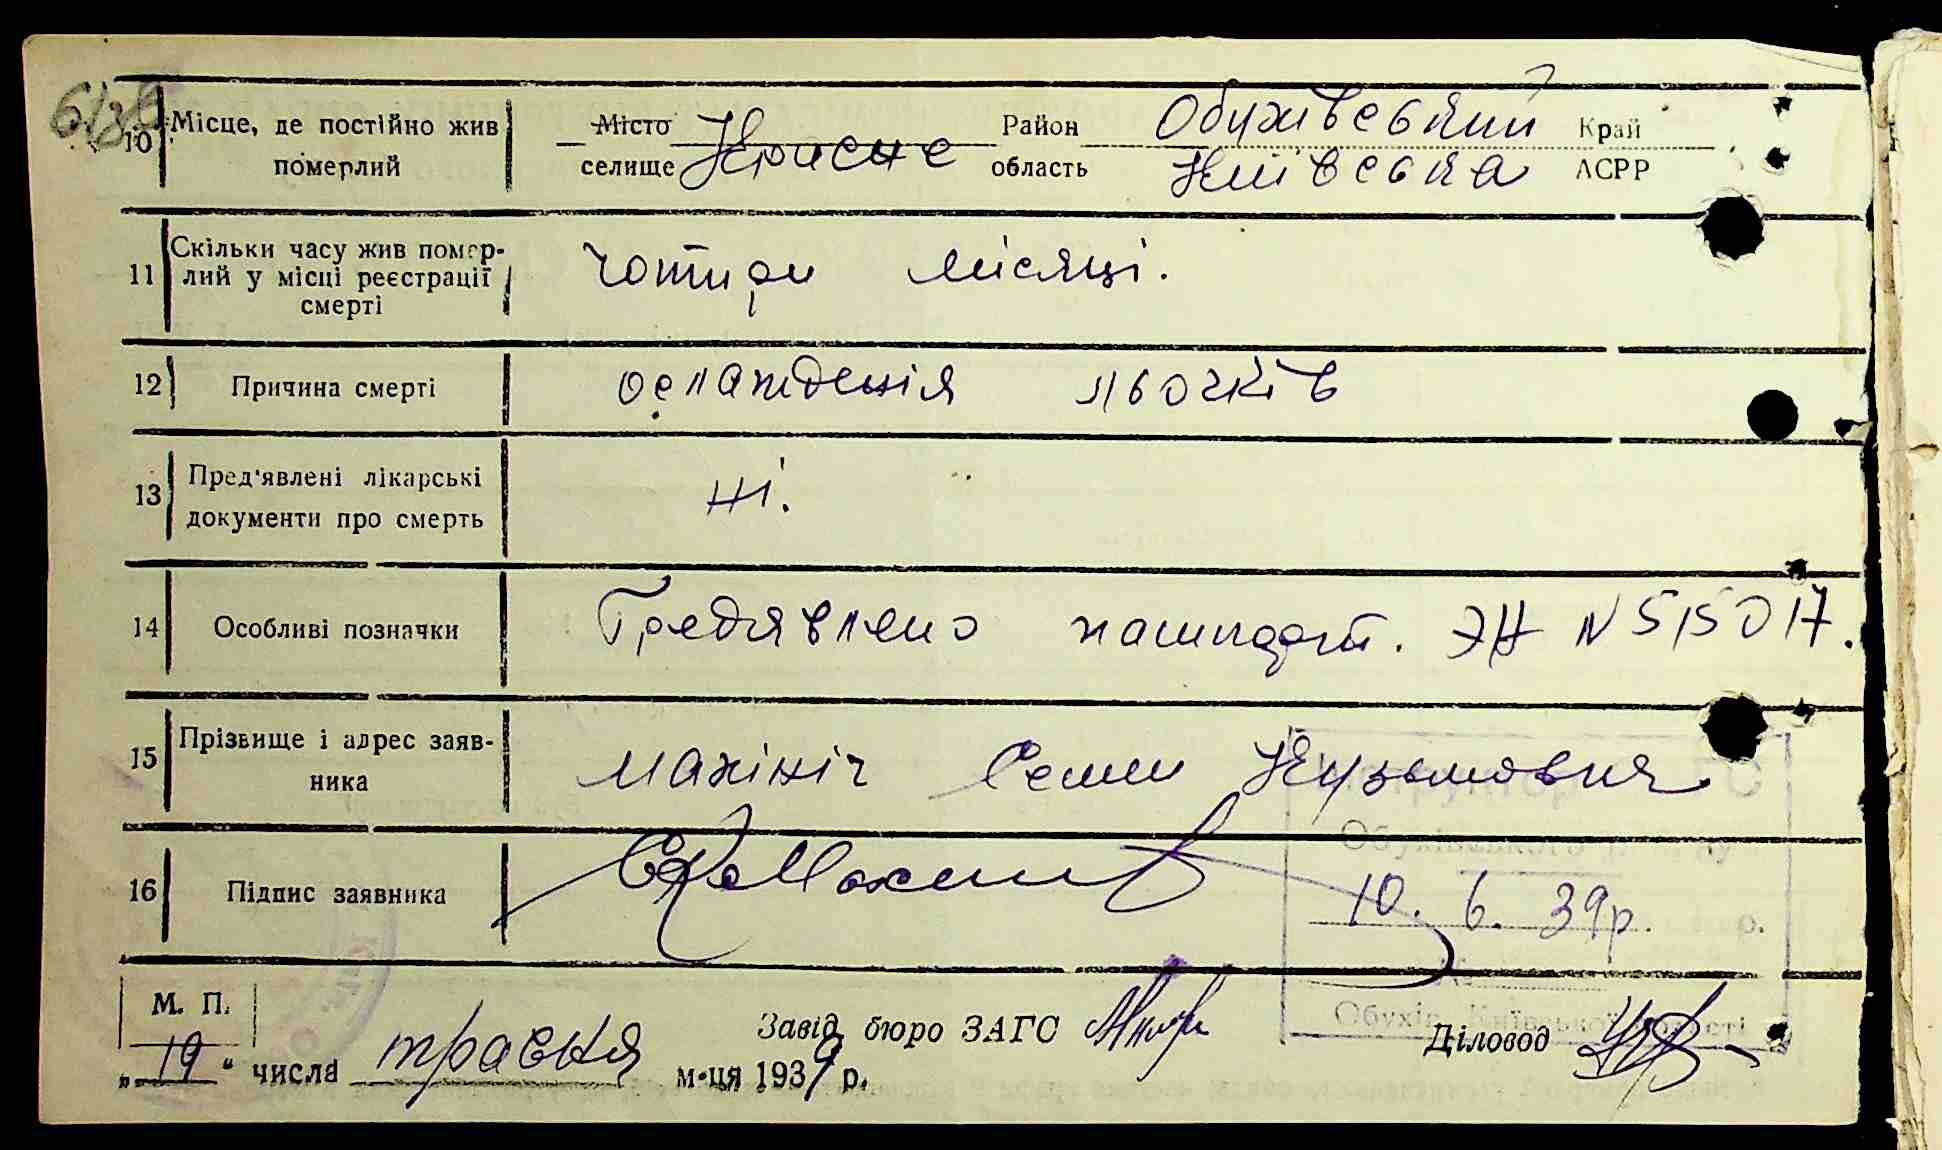 10 Місце, де постійно жив померлий
Місто селище Красне Район область Обухівский Київська Край АСРР
11 Скільки часу жив помер-
лий у місці реєстрації
смерті
чотири місяці.
12 Причина смерті
ослажденія льочків
13 Пред'явлені лікарські
документи про смерть
ні.
14 Особливі позначки
Предявлено пашпорт. ЭН N 515017.
15 Прізвище і адрес заяв-
ника
Махініч Семен Кузьмовия
16 Підпис заявника
Обухівського
10. 6. 39р. р.
Обухів, Київської області
М. П.
„ 19 “ числа травня м-ця 1939 р.
Завід. бюро ЗАГС
Діловод